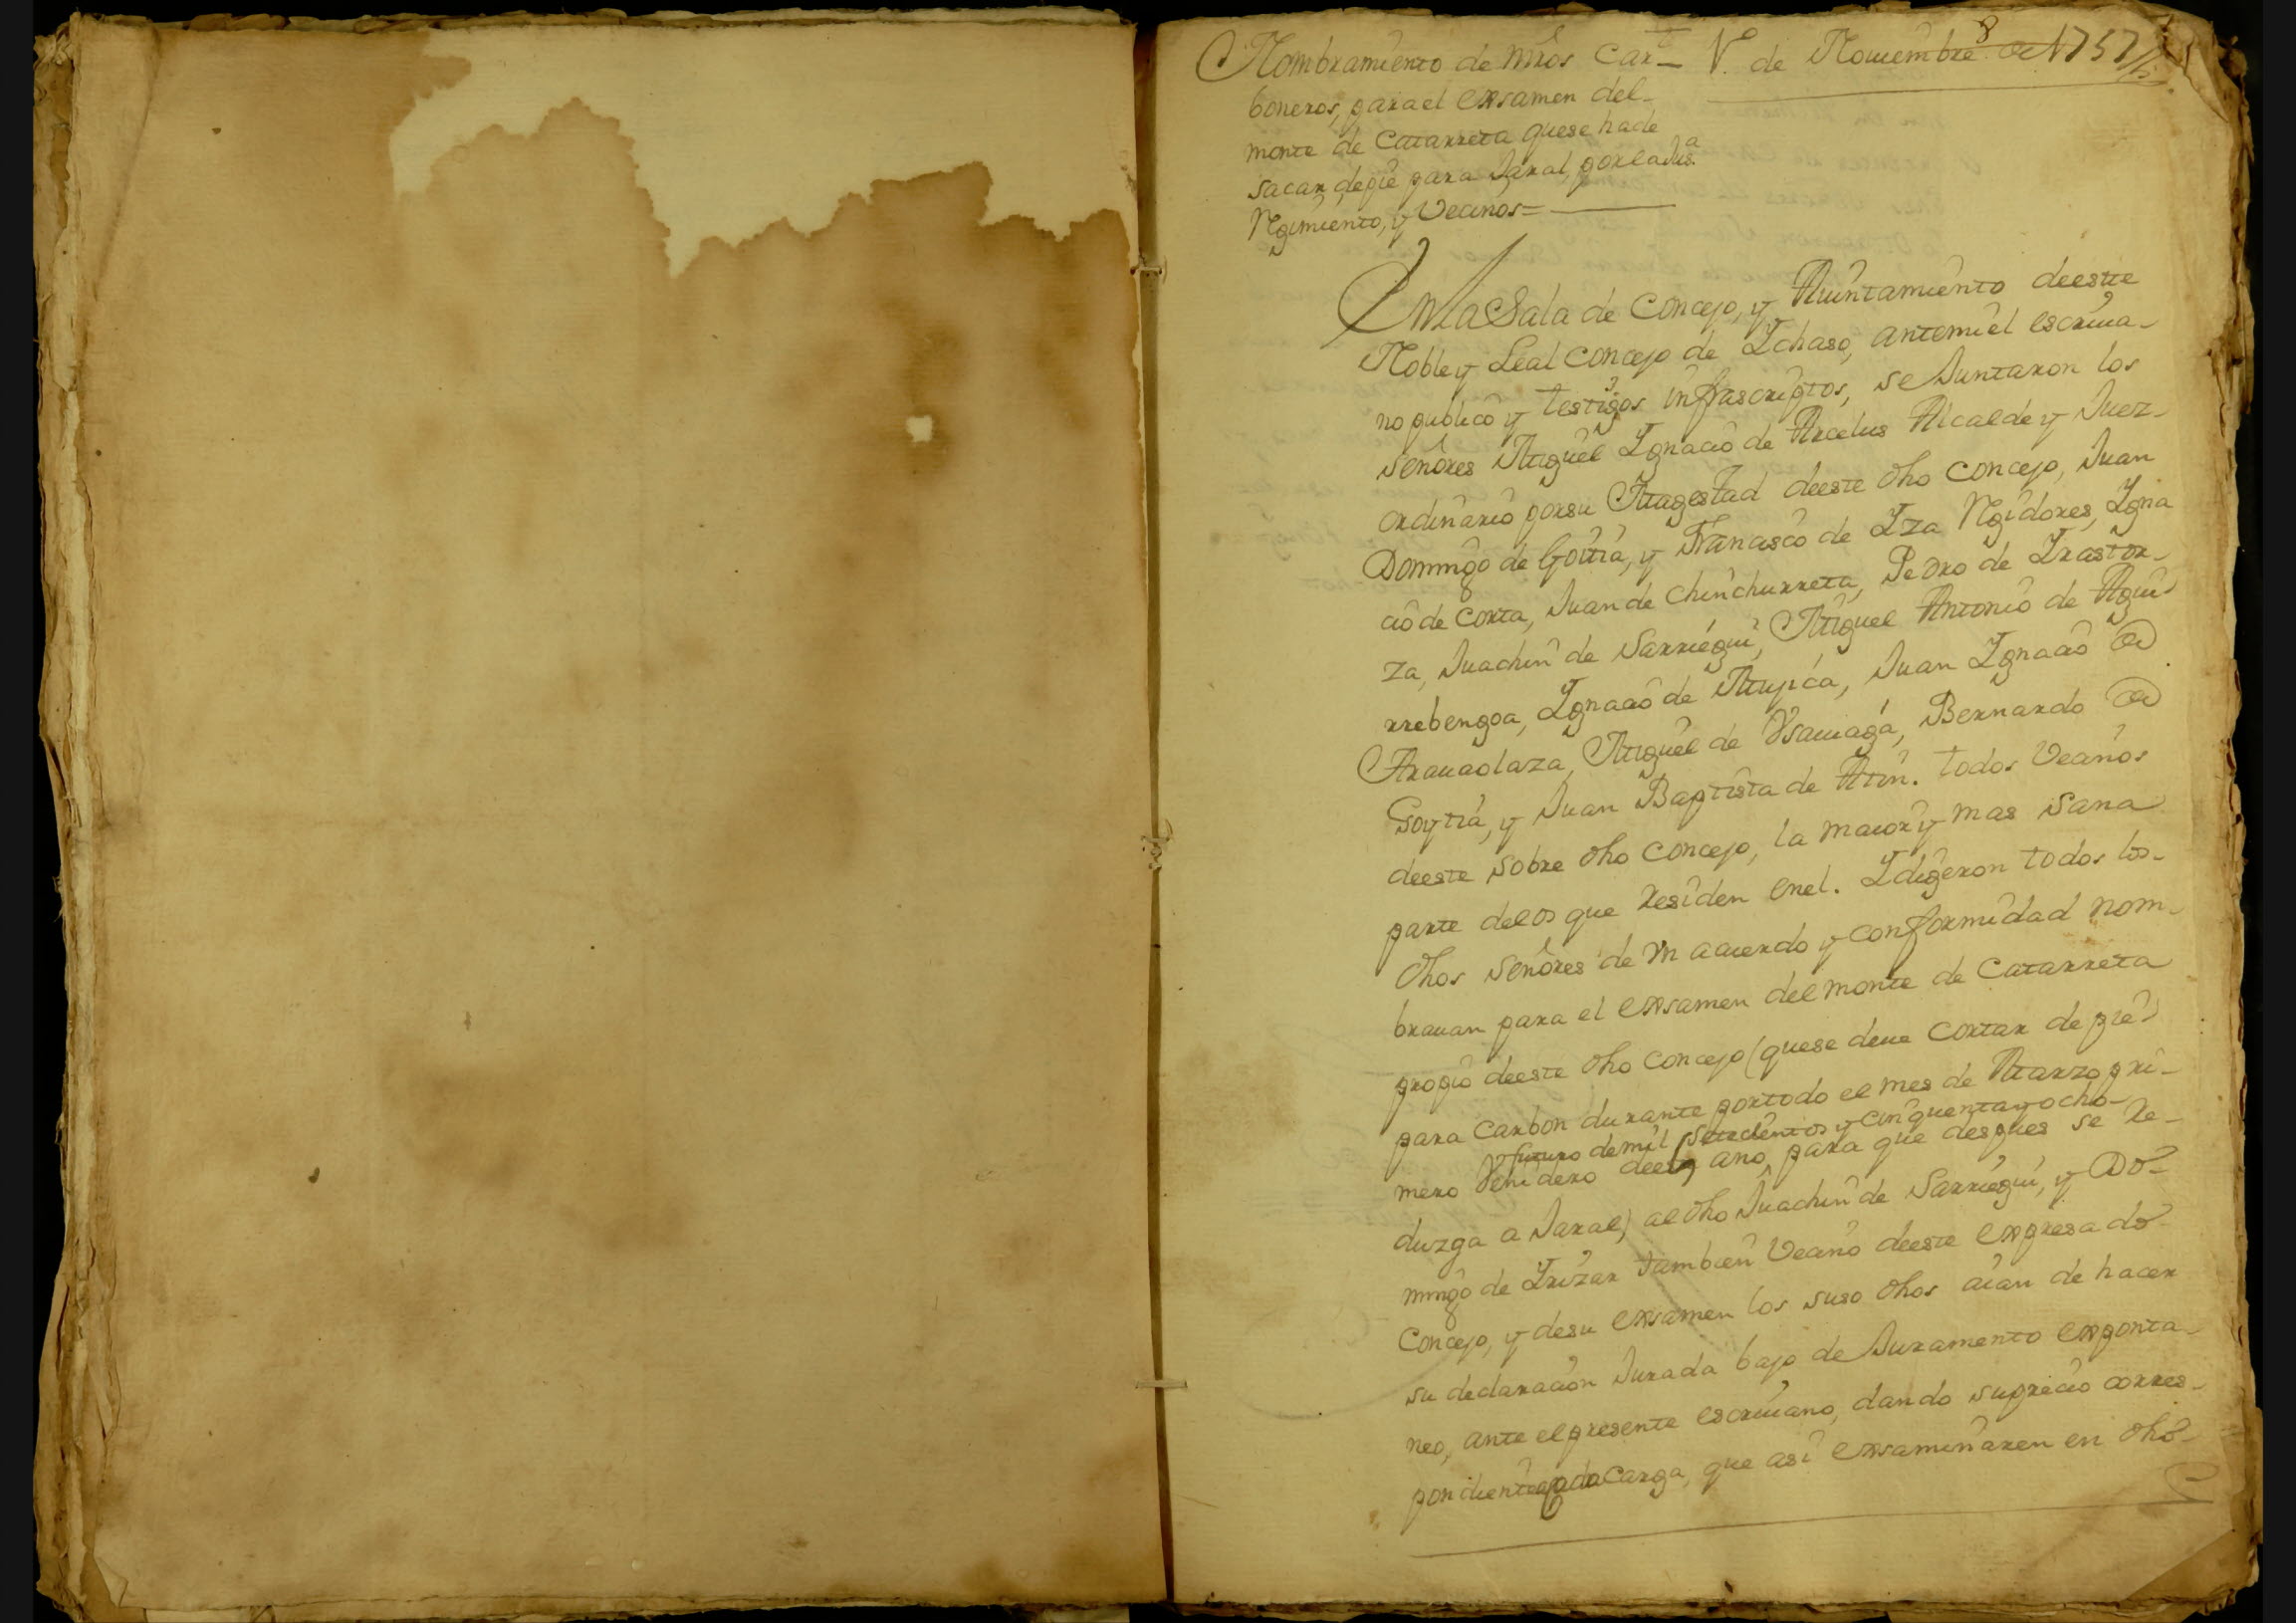 Nombramiento de mros Car- V. de Nouiembre de 1757
8
boneros, para el exsamen del
monte de Catarreta que se ha de
sacar, de pie para Jaral, por la Jusa.
Regimiento, y Vecinos=
En la Sala de Concejo, y Aiuntamiento de este
Noble y Leal Concejo de Ichaso, ante mi el escriua-
no publico y testigos infrascriptos, se Juntaron los
Señores Miguel Ignacio de Arcelus Alcalde y Juez
ordinario por su Magestad de este dho Concejo, Juan
Domingo de Goitia, y Francisco de Iza Regidores, Igna
cio de Corta, Juan de Chinchurreta, Pedro de Irastor-
za, Juachin de Sarriegui, Miguel Antonio de Agui-
rrebengoa, Ignacio de Mujica, Juan Ignacio de
Arauaolaza, Miguel de Vsauiaga, Bernardo de
Goytia, y Juan Baptista de Atin. todos Vecinos
de este sobre dho Concejo, la maior y mas sana
parte de los que residen en el. I digeron todos los
dhos Señores de vn acuerdo y conformidad nom-
brauan para el exsamen del monte de Catarreta
propio de este dho Concejo (que se deue cortar de pie
para carbon durante por todo el mes de Marzo pri-
y futuro de mil setecientos y cinquenta y ocho
mero Venidero de este año, para que despues se re-
duzga a Jaral) al dho Juachin de Sarriegui, y Do-
mingo de Irizar tambien Vecino de este expresado
Concejo, y de su exsamen los suso dhos aian de hacer
su declaracion Jurada bajo de Juramento exponta-
neo, ante el presente escriuano, dando su precio corres-
pondiente a cada carga, que asi exsaminaren en dho